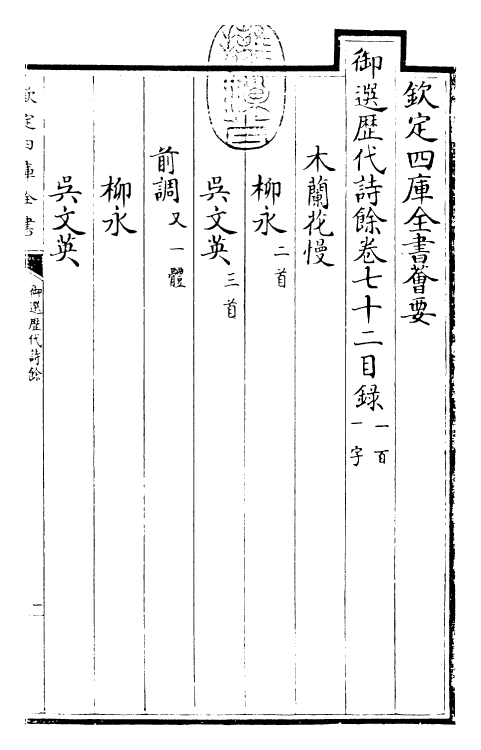 欽定四庫全書薈要
御選歴代詩餘卷七十二目録 一百一字
木蘭花慢
柳永二首
吳文英三首
前調又一體
柳永
吳文英
欽定四庫全書
御選歴代詩餘
一